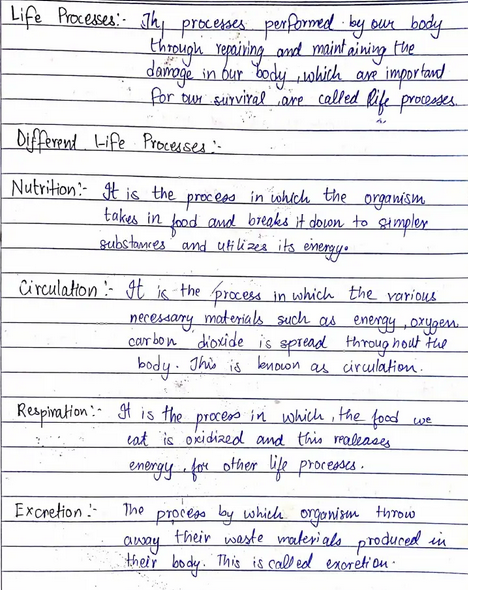 Life Processes:- Thy processes performed by our body
through repairing and maintaining the
damage in our body, which are important
for our survival, are called life processes.
Different Life Processes:-
Nutrition:- It is the process in which the organism
takes in food and breaks it down to simpler
substances and utilizes its energy.
Circulation:- It is the process in which the various
necessary materials such as energy, oxygen,
carbon dioxide is spread throughout the
body. This is known as circulation.
Respiration:- It is the process in which, the food we
eat is oxidized and this realeases
energy, for other life processes.
Excretion:- The process by which organism throw
away their waste materials produced in
their body. This is called excretion.